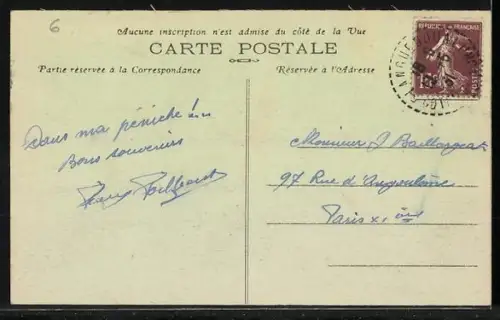 6
Aucune inscription n'est admise du côté de la Vue
CARTE POSTALE
Partie réservée à la Correspondance
Réservée à l'Adresse
REPUBLIQUE FRANÇAISE
Dans ma péniche !..
Bons souvenirs
Monsieur J Baillargeat
97 Rue d'Angoulême
Paris XI ème